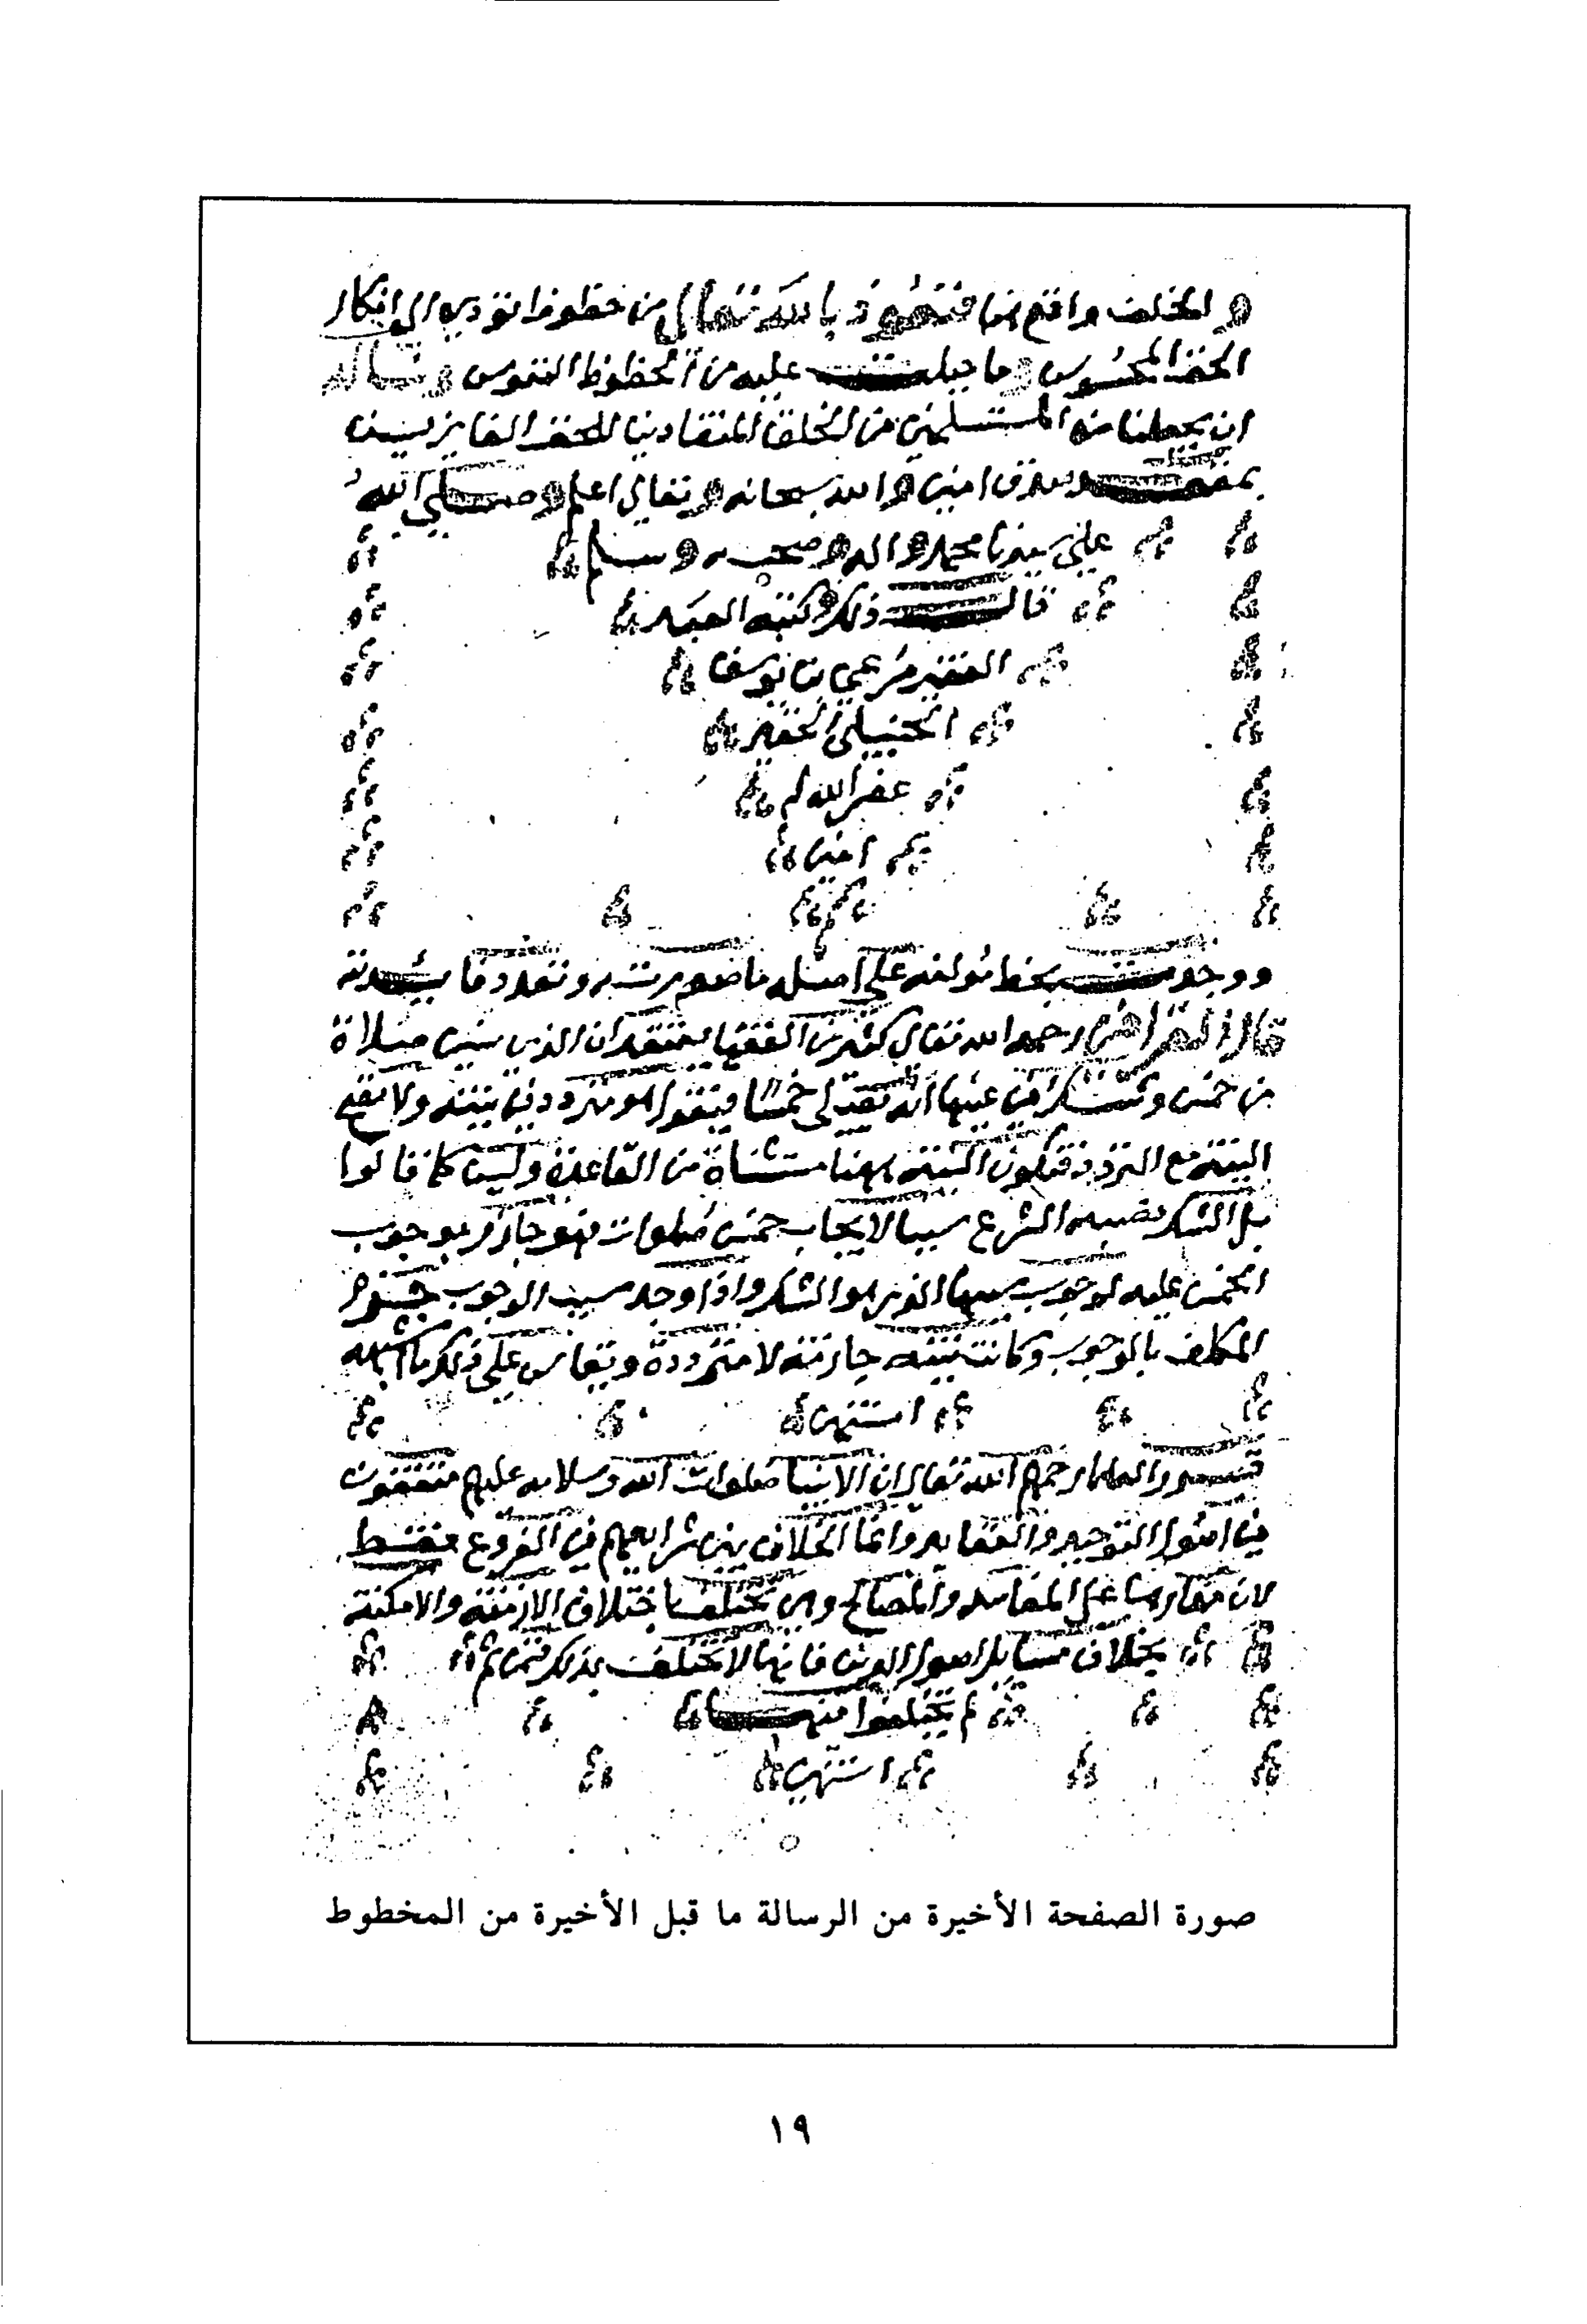 والخلف واقع بها فنعوذ بالله تعالى من حظوظ تودي الى انكار
الحق المحسوس وما جبلت عليه من الحظوظ النفوس ونساله
ان يجعلنا من المستسلمين من الخلق المنقادين للحق الفايزين
بمقعد صدق امين والله سبحانه وتعالى اعلم وصلى الله
على سيدنا محمد واله وصحبه وسلم
قال ذلك وكتبه العبد
الفقير مرعي بن يوسف
الحنبلي الحقير
عفر الله له
امين
ووجدت بخط مولفه على اصله ما صورته
قال القرافي رحمه الله تعالى كثير من الفقها يعتقد ان الذي نسي صلاة
من خمس وشك في عينها انه يصلي خمسا فيقول هو متردد في نيته ولا تصح
النية مع التردد فتكون النية ههنا مستثناة من القاعدة وليس كما قالوا
بل الشك نصبه الشرع سببا لايجاب خمس صلوات فهو جازم بوجوب
الخمس عليه لوجوب سببها الذي هو الشك واذا وجد سبب الوجوب جزم
المكلف بالوجوب وكانت نيته جازمة لا مترددة ويقاس على ذلك ما اشبهه
انتهى
العلما رحمهم الله تعالى ان الانبيا صلوات الله وسلامه عليهم متفقون
في اصول التوحيد والعقايد وانما الخلاف بين شرايعهم في الفروع فقط
لان مدارها على المفاسد والمصالح وهي تختلف باختلاف الازمنة والامكنة
بخلاف مسايل اصول الدين فانها لا تختلف بذلك فمن ثم
لم يختلفوا فيها
انتهى
صورة الصفحة الأخيرة من الرسالة ما قبل الأخيرة من المخطوط
١٩